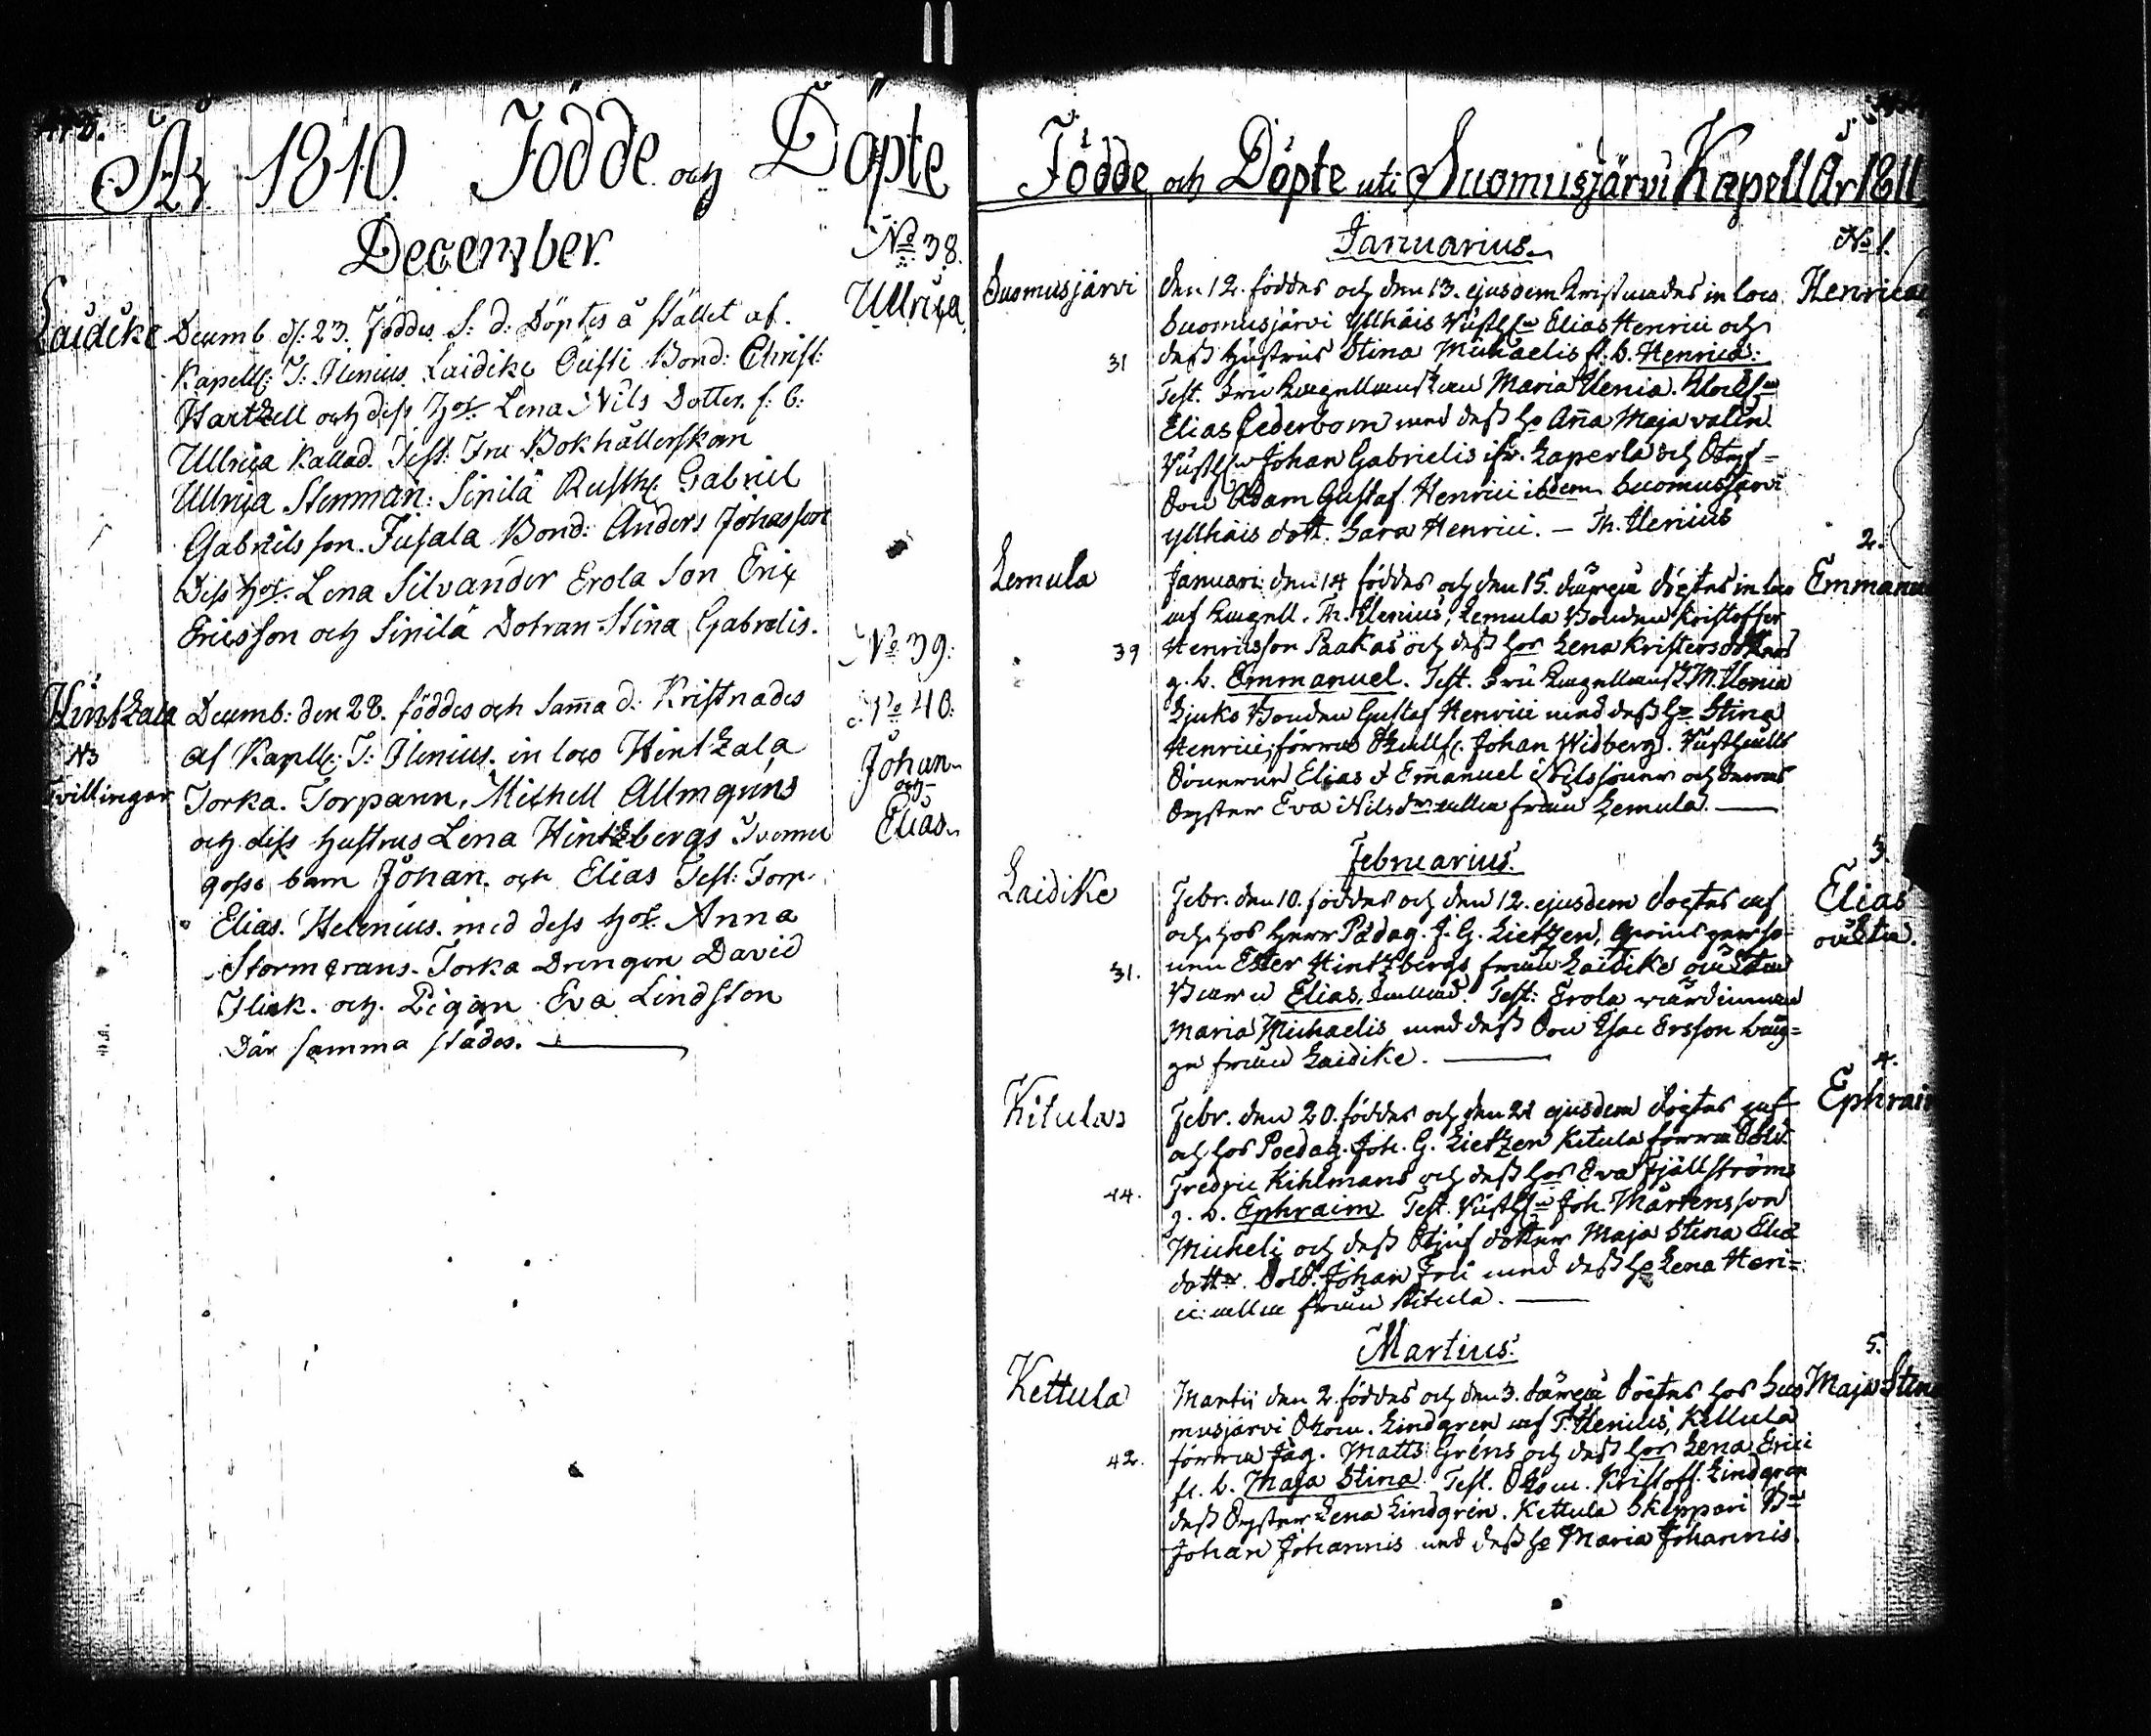 År 1810. Födde och Döpte
December.
No 38.
Ullrica
Laidike
Decemb. d: 23. Föddes S: d: Döptes å stället af
Kapell: T: Ilenius Laidike Bond: Christ:
Hartzell och dess Hos: Lena Nils Dotter. f: b:
Ullrica Kallad. Test: Fru Bokhållerskan
Ullrica Stenman: Sinilä Rusth: Gabriel
Gabrielsson. Bond: Anders Johansson
Dess Hos: Lena Silvander Erola Son Eric
Ericsson och Sinilä Dotran Stina Gabrielis.
No 39:
No 40:
Johan
och
Elias
Hintzala
Nb
Tvillingar
Decemb: den 28. föddes och Samma d: Kristnades
af Kapell: T: Ilenius in loco Hintzala
Torka. Torparn, Michell Allmqvins
och dess hustrus Lena Hintzbergs Tvenne
gosse barn Johan. och Elias Test: Torp.
Elias. Helenius. med dess Hos: Anna
Stormqrans. Torka Drengen David
Flink. och. Pigan Eva Lindston
Där samma städes.
Födde och Döpte uti Suomusjärvi Kapell År 1811
Januarius
No 1.
Suomusjärvi
Henrica
31
Den 12. föddes och den 13. ejusdem Kristnades in loco
Suomusjärvi Yllhäis Elias Henrici och
dess hustrus Stina Michaelis fl. b. Henrica:
Test. Fru Maria Ilenia.
Elias Cederborn med dess ho Anna Maja
Johan Gabrielis
Son Adam Gustaf Henrici ibidem Suomusjärvi
Yllhäis dott. Sara Henrici. — Th. Ilenius
2.
Lemula
Emmanu
39
Januari den 14 föddes och den 15. därpå döptes in loco
af Kapell. Th. Ilenius, Lemula Bonden Kristoffer
Henricsson Paakas och dess hor Lena Kristersdotter
g. b. Emmanuel. Test. Fru M. Ilenia
Bonden Gustaf Henrici med dess ho Stina
Henrici, förra Johan Widberg.
Sönerne Elias & Emanuel Nilssöner och deras
Syster Eva Nilsdr alla från Lemula.
Februarius.
3.
Laidike
Elias
oäkta.
31.
Febr. den 10. föddes och den 12. ejusdem döptes af
och hos Herr Pädag. J. G. Lietzen,
Ester Hintzbergs från Laidike oäkta
Barn Elias, kallad. Test: Erola värdinnan
Maria Michaelis med dess Son Isac Ersson
från Laidike.
4.
Kitula
Ephraim
44.
Febr. den 20. föddes och den 21 ejusdem döptes af
och hos Poedag. Joh. G. Lietzen Kitula förra Sold.
Fredric Kihlmans och dess hor Eva Fjällströms
g. b. Ephraim. Test. Joh. Mårtensson
Micheli och dess dotter Maja Stina Elis
dotter. Sold. Johan Fri med dess ho Lena Hen=
ici alla från Kitula.
Martius.
5.
Kettula
Maja Stina
42.
Martii den 2. föddes och den 3. därpå döptes hos Suo
musjärvi Lindgren af T. Ilenius, Kettula
förra Jäg. Matts Gréns och dess hor Lena Erici
fl. b. Maja Stina. Test. Kristoff. Lindgren
dess Syster Lena Lindgrén. Kettula Skeppari
Johan Johannis med dess ho Maria Johannis.